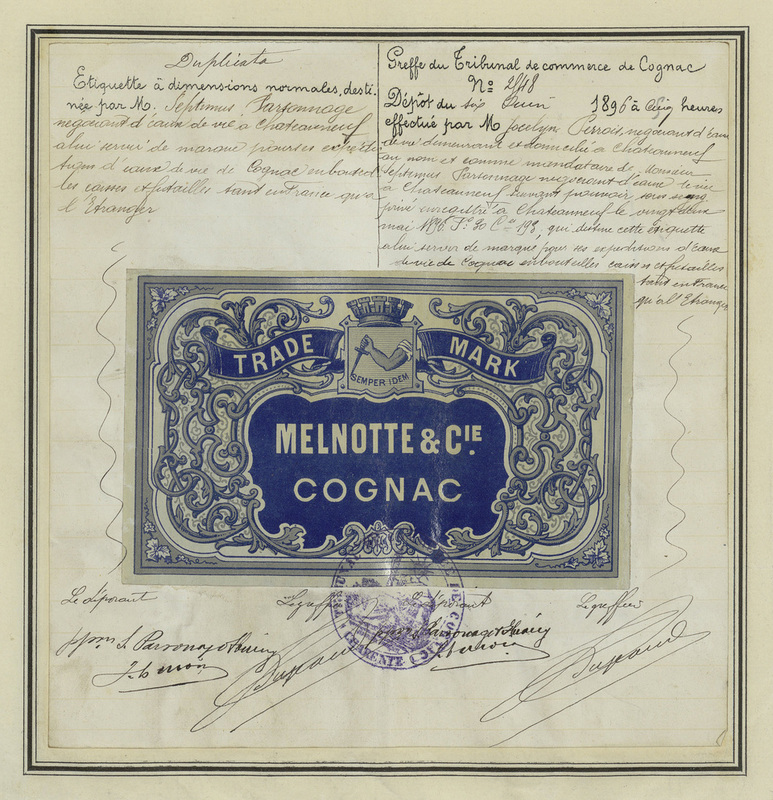 Duplicata
Etiquette à dimensions normales, desti-
née par M. Septimus Parsonnage
négociant d'eaux de vie à Chateauneuf
à lui servir de marque pour ses expédi-
tions d'eaux de vie de Cognac en bouteilles
les caisses et futailles tant en France qu'à
l'Etranger
Greffe du Tribunal de commerce de Cognac
No 2148
Dépôt du six Juin 1896 à cinq heures
effectué par M Jocelyn Perrois, négociant d'eaux
de vie demeurant et domicilié à Chateauneuf
au nom et comme mandataire de Monsieur
Septimus Parsonnage négociant d'eaux de vie
à Chateauneuf suivant pouvoir sous seing
privé enregistré à Chateauneuf le vingt deux
mai 1896 Fo 30 Ce 193, qui destine cette étiquette
à lui servir de marque pour ses expéditions d'eaux
de vie de Cognac en bouteilles caisses et futailles
tant en France
qu'à l'Etranger
TRADE MARK
SEMPER IDEM
MELNOTTE & CIE.
COGNAC
Le déposant Le greffier Le déposant Le greffier
CHARENTE